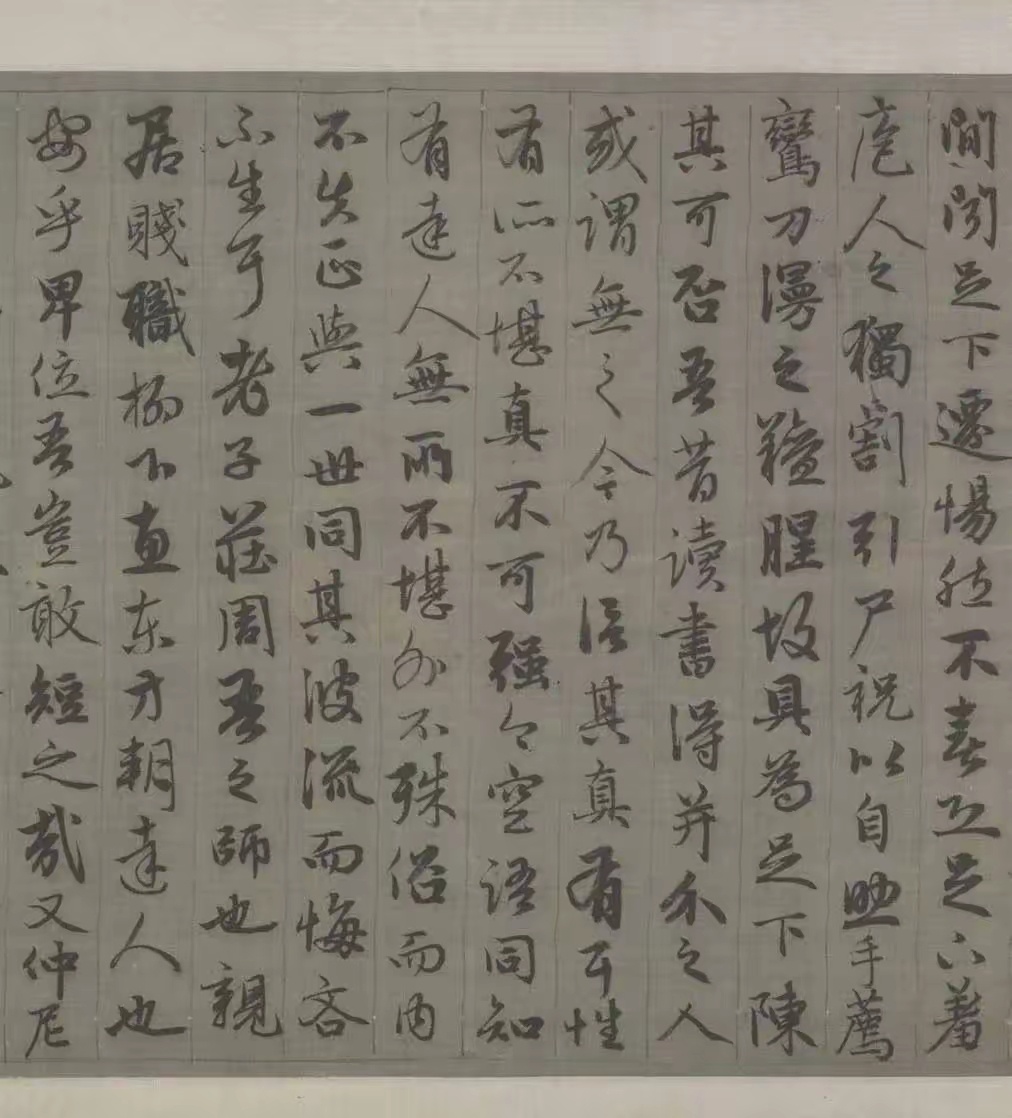 間聞足下遷惕然不喜恐足下羞
庖人之獨割引尸祝以自助手薦
鸞刀漫之羶腥故具為足下陳
其可否吾昔讀書得并介之人
或謂無之今乃信其真有耳性
有所不堪真不可强今空語同知
有達人無所不堪外不殊俗而内
不失正與一世同其波流而悔吝
不生耳老子莊周吾之師也親
居賤職柳下惠東方朔達人也
安乎卑位吾豈敢短之哉又仲尼